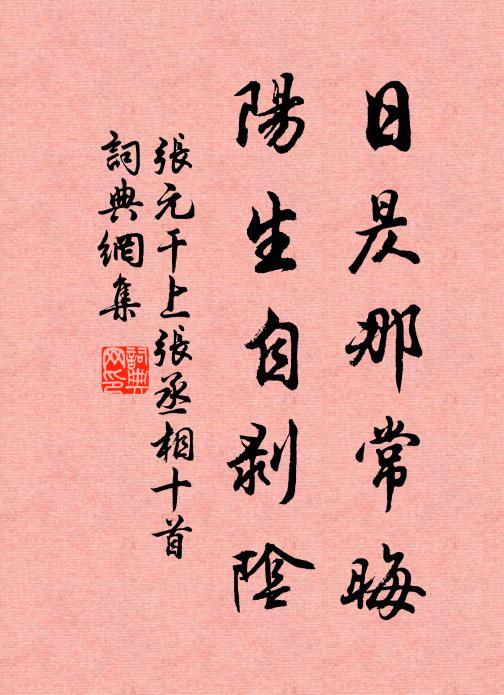 日昃那常晦
陽生自剥陰
張元干上張丞相十首
詞典網集
詞典網印